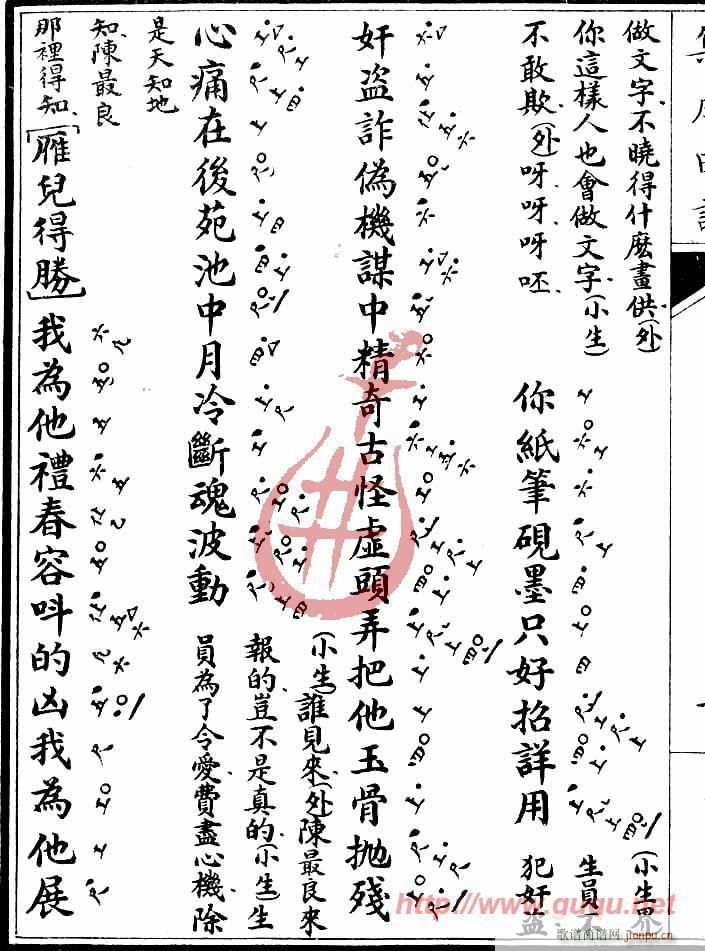 做文字不曉得什麽畫供(外)
你這樣人也會做文字(小生)
不敢欺(外)呀呀呀呸
你紙筆硯墨只好招詳用
(小生
生員
犯奸
奸盜詐偽機謀中精奇古怪虛頭弄把他玉骨拋殘
(小生)誰見來(外)陳最良來
報的豈不是真的(小生)生
員為了令愛費盡心機除
心痛在後苑池中月冷斷魂波動
是天知地
知陳最良
那裡得知
[雁兒得勝]我為他禮春容呌的凶我為他展
http://www.qupu.net
歌谱简谱网 jianpu.cn